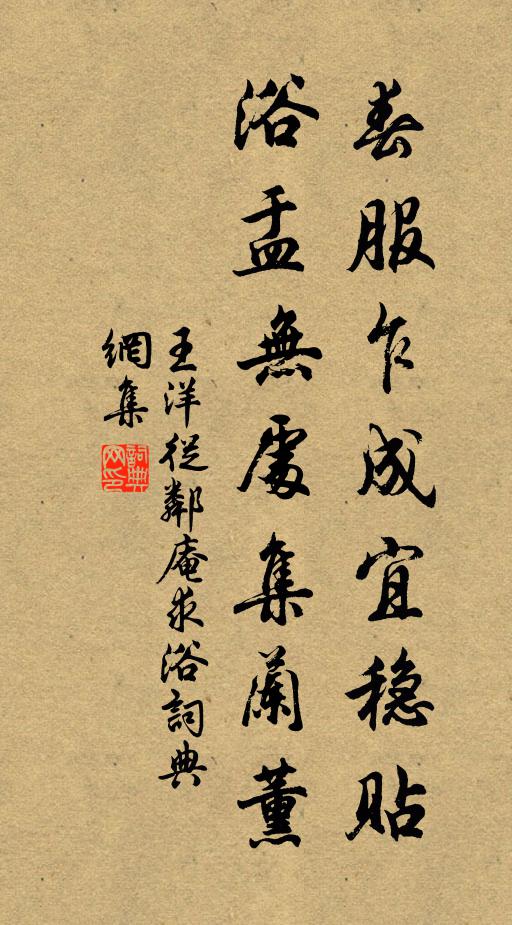 春服乍成宜穩貼
浴盂無處集蘭薰
王洋從鄰庵求浴詞典
網集
詞典網印